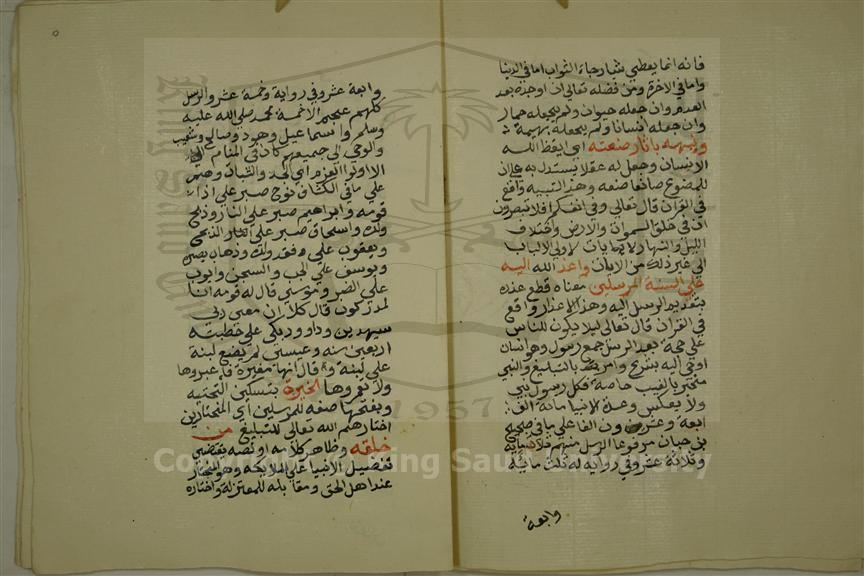 فانه انما يعطي شيا رجاء الثواب اما في الدنيا
واما في الاخرة ومن فضله تعالى ان اوجده بعد
العدم وان جعله حيوان ولم يجعله جماد
وان جعله انسانا ولم يجعله بهيمة
ونبهه باثار صنعته اي ايقظ الله
الانسان وجعل له عقلا يستدل به على ان
للمصنوع صانعا صنعه وهذا التنبيه واقع
في القران قال تعالى وفي انفسكم افلا تبصرون
ان في خلق السموات والارض واختلاف
الليل والنهار لايات لاولي الالباب
الى غير ذلك من الايات واعذر الله اليه
على السنة المرسلين معناه قطع عذره
بتقديم الرسل اليه وهذا الاعذار واقع
في القران قال تعالى ليلا يكون للناس
على حجة بعد الرسل جمع رسول وهو انسان
اوحي اليه بشرع وامر بالتبليغ والنبي
مخبر بالغيب خاصة فكل رسول نبي
ولا يعكس وعدة الانبيا مائة الف
اربعة وعشرون الفا على ما في صحيح
بن حبان مرفوعا الرسل منهم ثلاثمايه
وثلاثة عشر وفي رواية له ثلث مائية
وابعة
٥
وابعة عشر وفي رواية وخمسة عشر والرسل
كلهم عجم الا خمسة محمد صلى الله عليه
وسلم واسماعيل وهود وصالح وشعيب
والوحي الى جميعهم كان في المنام
الا اولوا العزم اي الجد والثبات وهم
على ما في الكشاف نوح صبر على اذا
قومه وابراهيم صبر على النار وذبح
ولده واسحاق صبر على الذبح
ويعقوب على فقد ولده وذهاب بصره
ويوسف على الجب والسجن وايوب
على الضر وموسى قال له قومه انا
لمدركون قال كلا ان معي ربي
سيهدين وداود بكى على خطيته
اربعين سنة وعيسى لم يضع لبنة
على لبنة وقال انها معبرة فاعبروها
ولا تعمروها الخيرة بتسكين التحتيه
وبفتحها صفه للمرسلين اي المختارين
اختارهم الله تعالى للتبليغ من
خلقه وظاهر كلامه او نصه يقتضي
تفضيل الانبيا على الملايكة وهو المختار
عند اهل الحق ومقابله للمعتزلة واختاره